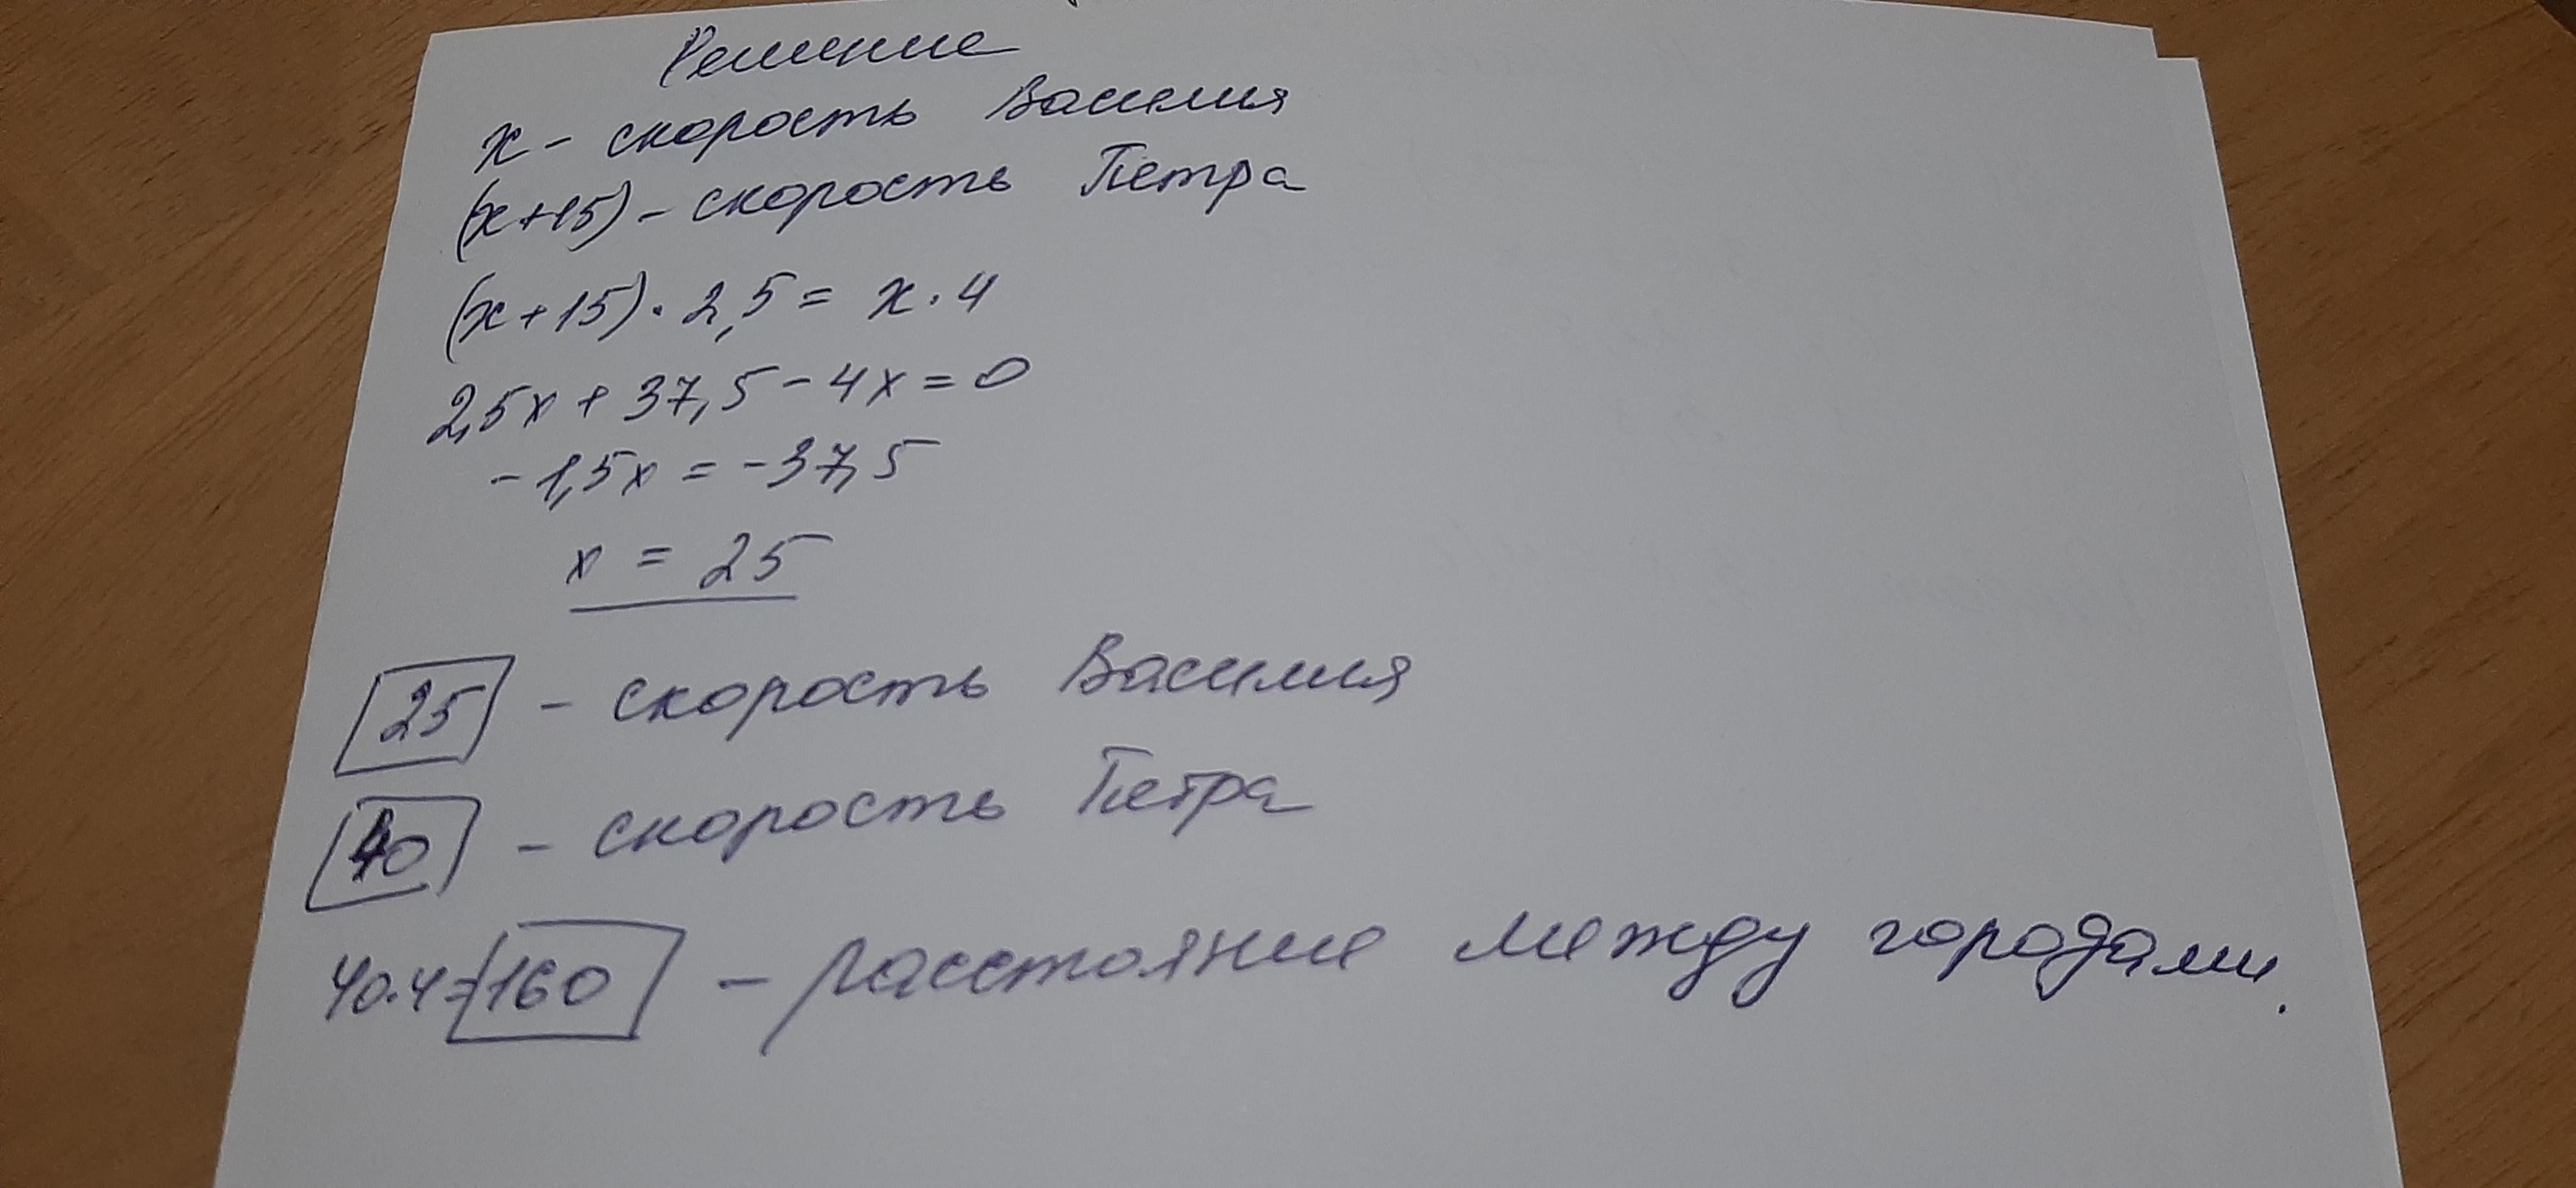 Решение
x - скорость Василия
(x+15) - скорость Петра
(x+15) · 2,5 = x · 4
2,5x + 37,5 - 4x = 0
- 1,5x = - 37,5
x = 25
25 - скорость Василия
40 - скорость Петра
40·4=160 - расстояние между городами.